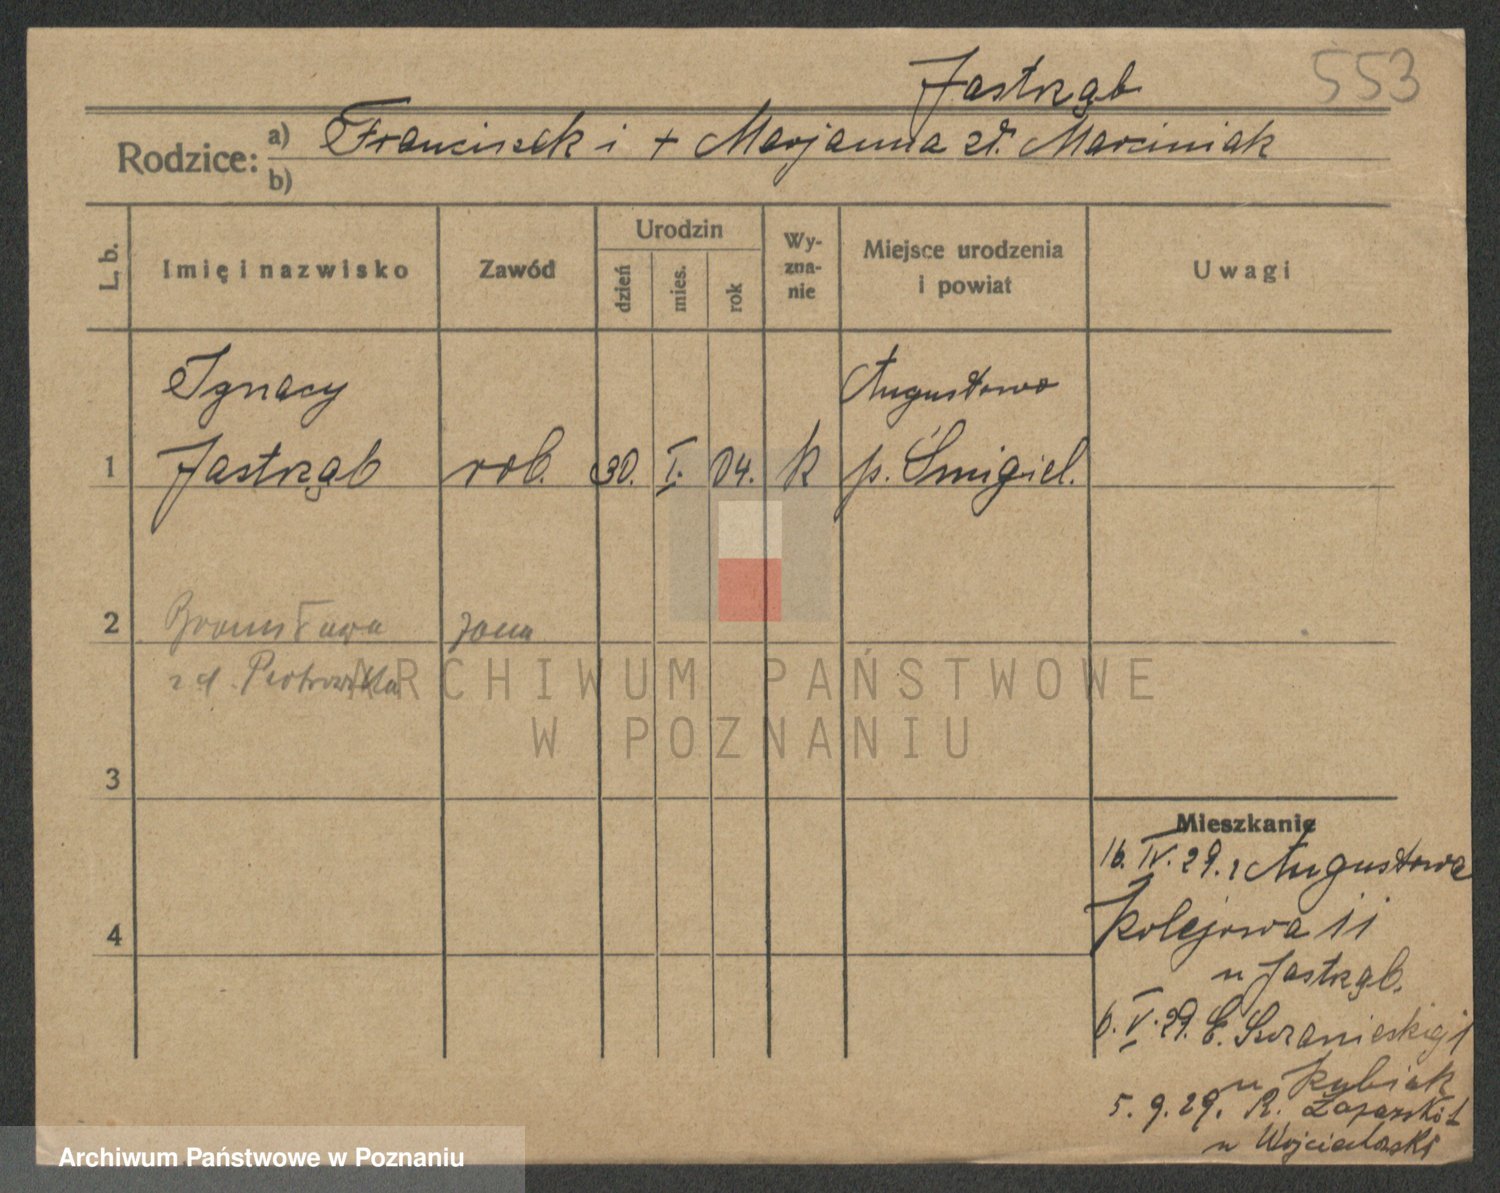 Jastrząb
553
Rodzice: a) Franciszek i + Marjanna zd. Marciniak
b)
L. b.
Imię i nazwisko
Zawód
Urodzin
dzień
mies.
rok
Wy-
zna-
nie
Miejsce urodzenia
i powiat
Uwagi
Ignacy
Augustowo
1 Jastrząb rob. 30. I. 04. k p. Śmigiel.
2 Bronisława żona
zd. Piotrowska
ARCHIWUM PAŃSTWOWE
W POZNANIU
3
Mieszkanie
16. IV. 29. z Augustowa
4
Kolejowa 11
u Jastrząb.
6. V. 29. E. Sczanieckiej 1
u Kubiak
5. 9. 29. R.
u
Archiwum Państwowe w Poznaniu